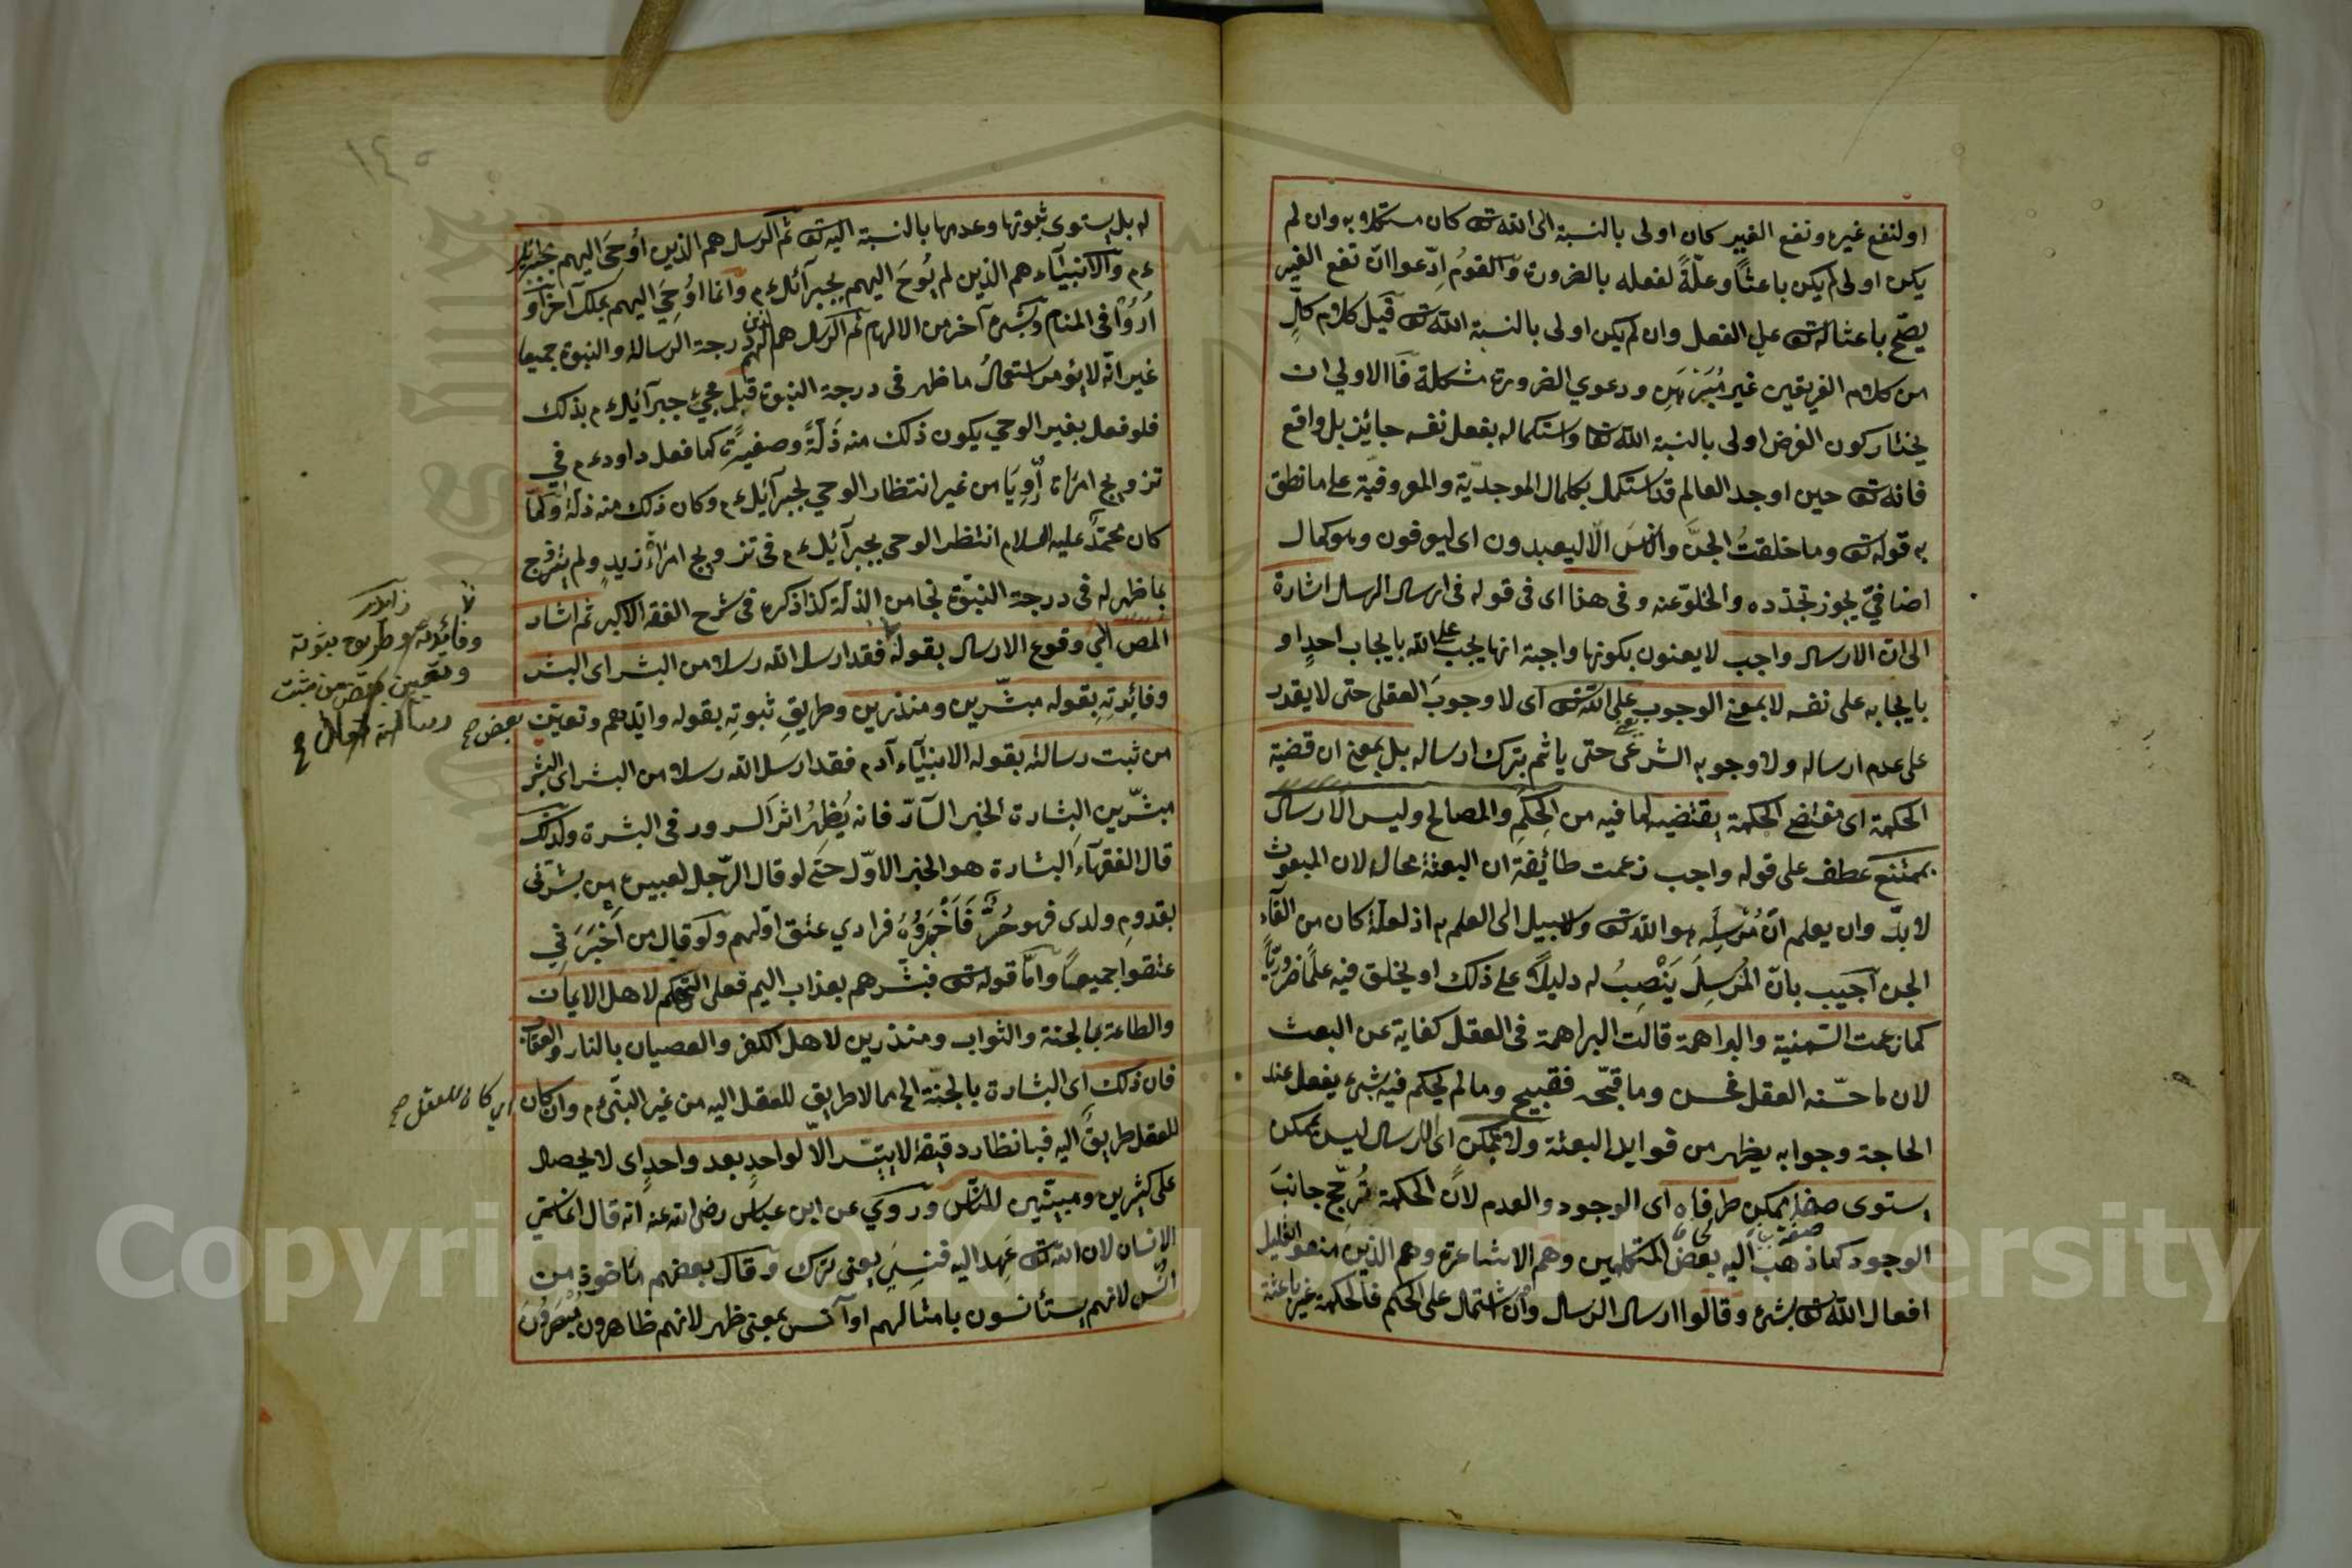 او لنفع غيره ونفع الغير كان اولى بالنسبة الى الله تع كان مستكملا به وان لم
يكن اولى لم يكن باعثًا وعلّةً لفعله بالضرورة والقومُ اِدّعوا انّ نفع الغير
يصحّ باعثا له تع على الفعل وان لم يكن اولى بالنسبة الله تع قيل كلام كلٍّ
من كلام الفريقين غير مُبَرْهَنٍ ودعوي الضرورة مشكلة فَالاولي ان
يختار كون الغرض اولى بالنسبة الله تعا واستكماله بفعل نفسه جايز بل واقع
فانه تع حين اوجد العالم قد استكمل بكمال الموجديّة والمعروفيّة على ما نطق
به قوله تع وما خلقتُ الجنَّ والانسَ الّا ليعبدون اى ليعرفون وهو كمال
اضافيّ يجوز تجدّده والخلوّ عنه وفى هذا اى فى قوله فى ارسال الرسل اشارة
الى ان الارسال واجب لا يعنون بكونها واجبة انها يجب على الله بايجاب احدٍ او
بايجابه على نفسه لا بمعنى الوجوب على الله تع اى لا وجوبَ العقلى حتى لا يقدر
على عدم ارساله ولا وجوبه الشرعى حتى ياثم بترك ارساله بل بمعنى ان قضية
الحكمة اى مقتضى الحكمة يقتضيه لما فيه من الحِكَمِ والمصالح وليس الارسال
بممتنع عطف على قوله واجب زعمت طائفة ان البعثة محال لان المبعوث
لا بدّ وان يعلم انّ مُرْسِلَه هو الله تع ولا سبيل الى العلم به اذ لعلّه كان من القاء
الجن اُجيب بانّ المُرْسِلَ يَنْصِبُ له دليلًا على ذلك او يخلق فيه علمًا ضروريّا
كما زعمت السّمنية والبراهمة قالت البراهمة فى العقل كفاية عن البعث
لان ما حسّنه العقل فحسن وما قبّحه فقبيح وما لم يحكم فيه بشئ يفعل عند
الحاجة وجوابه يظهر من فوايد البعثة ولا بممكن اى الارسال ليس بممكن
يستوى صفة ممكن طرفاه اى الوجود والعدم لانّ الحكمة تُرجّح جانبَ
الوجود كما ذهب اليه بعض المتكلمين وهم الاشاعرة وهم الذين منعو التعليل
افعال الله تع بشئ وقالوا ارسال الرسال وان اشتمال على الحكم فالحكمة غير باعثة
له بل يستوى ثبوتها وعدمها بالنسبة اليه تع ثم الرسل هم الذين اُوحىَ اليهم بجبرائيل
ءم والانبيآء هم الذين لم يُوحَ اليهم بجبرآئل ءم وانّما اُوحِيَ اليهم بملك آخر او
اُرُوْا فى المنام وبشئ آخر من الالهام ثم الرسل هم الذين لهم درجة الرسالة والنبوة جميعا
غير انّه لا يؤمر استعمالُ ما ظهر فى درجة النبوة قبل مجئ جبرآئيل ءم بذلك
فلو فعل بغير الوحي يكون ذلك منه ذَلّةً وصغيرةً كما فعل داود ءم في
تزويج امرأة اُورِيَا من غير انتظار الوحي لجبرآئيل ءم وكان ذلك منه ذلّة ولمّا
كان محمّدٌ عليه السلام انتظر الوحى بجبرآئيل ءم فى تزويج امراة زيدٍ ولم يتزوج
بما ظهر له فى درجة النبوّة نجا من الذلّة كذا ذكره فى شرح الفقه الاكبر ثم اشار
المص الى وقوع الارسال بقوله فقد ارسل الله رسلا من البشر اى البشر
وفائدتِهِ بقوله مبشّرين ومنذرين وطريقِ ثبوتِهِ بقوله وايّدهم وتعيين بعض صح
من ثبت رسالته بقوله الانبيآء آدم فقد ارسل الله رسلا من البشر الى البشر
مبشّرين البشارة الخبر السآرّ فانه يُظهِرُ اثر السرور فى البشرة ولذلك
قال الفقهآء البشارة هو الخبر الاوّل حتى لو قال الرّجل لعبيده من بشرنى
بقدومِ ولدى فهو حُرٌّ فَاَخْبَرُوْهُ فرادي عتق اوّلهم ولو قال من اَخْبَرَنِي
عتقوا جميعًا وامّا قوله تع فبشرهم بعذاب اليم فعلى التهكم لاهل الايمان
والطاعة بالجنة والثواب ومنذرين لاهل الكفر والعصيان بالنار والعقاب
فان ذلك اى البشارة بالجنّة الخ مما لا طريق للعقل اليه من غير النبّى ءم وان كان اي كان للعقل صح
للعقل طريقٌ اليه فبانظار دقيقة لا يتيسّر الّا لواحدٍ بعد واحدٍ اى لا يحصل
على كثيرين ومبيّنين للنّاس وروي عن ابن عباس رضى الله عنه انه قال انما سمّى
الانسان لان الله تع عَهِدَ اليه فنسِىَ يعنى ترك وقال بعضهم مأخوذ من
انس لانهم يستأنسون بامثالهم او آنس بمعنى ظهر لانهم ظاهرون مُبْصَرُونَ
وفائدته وطريق ثبوته
وتعيين بعض من ثبت
رسالته
١٤٠
Copyright © King Saud University